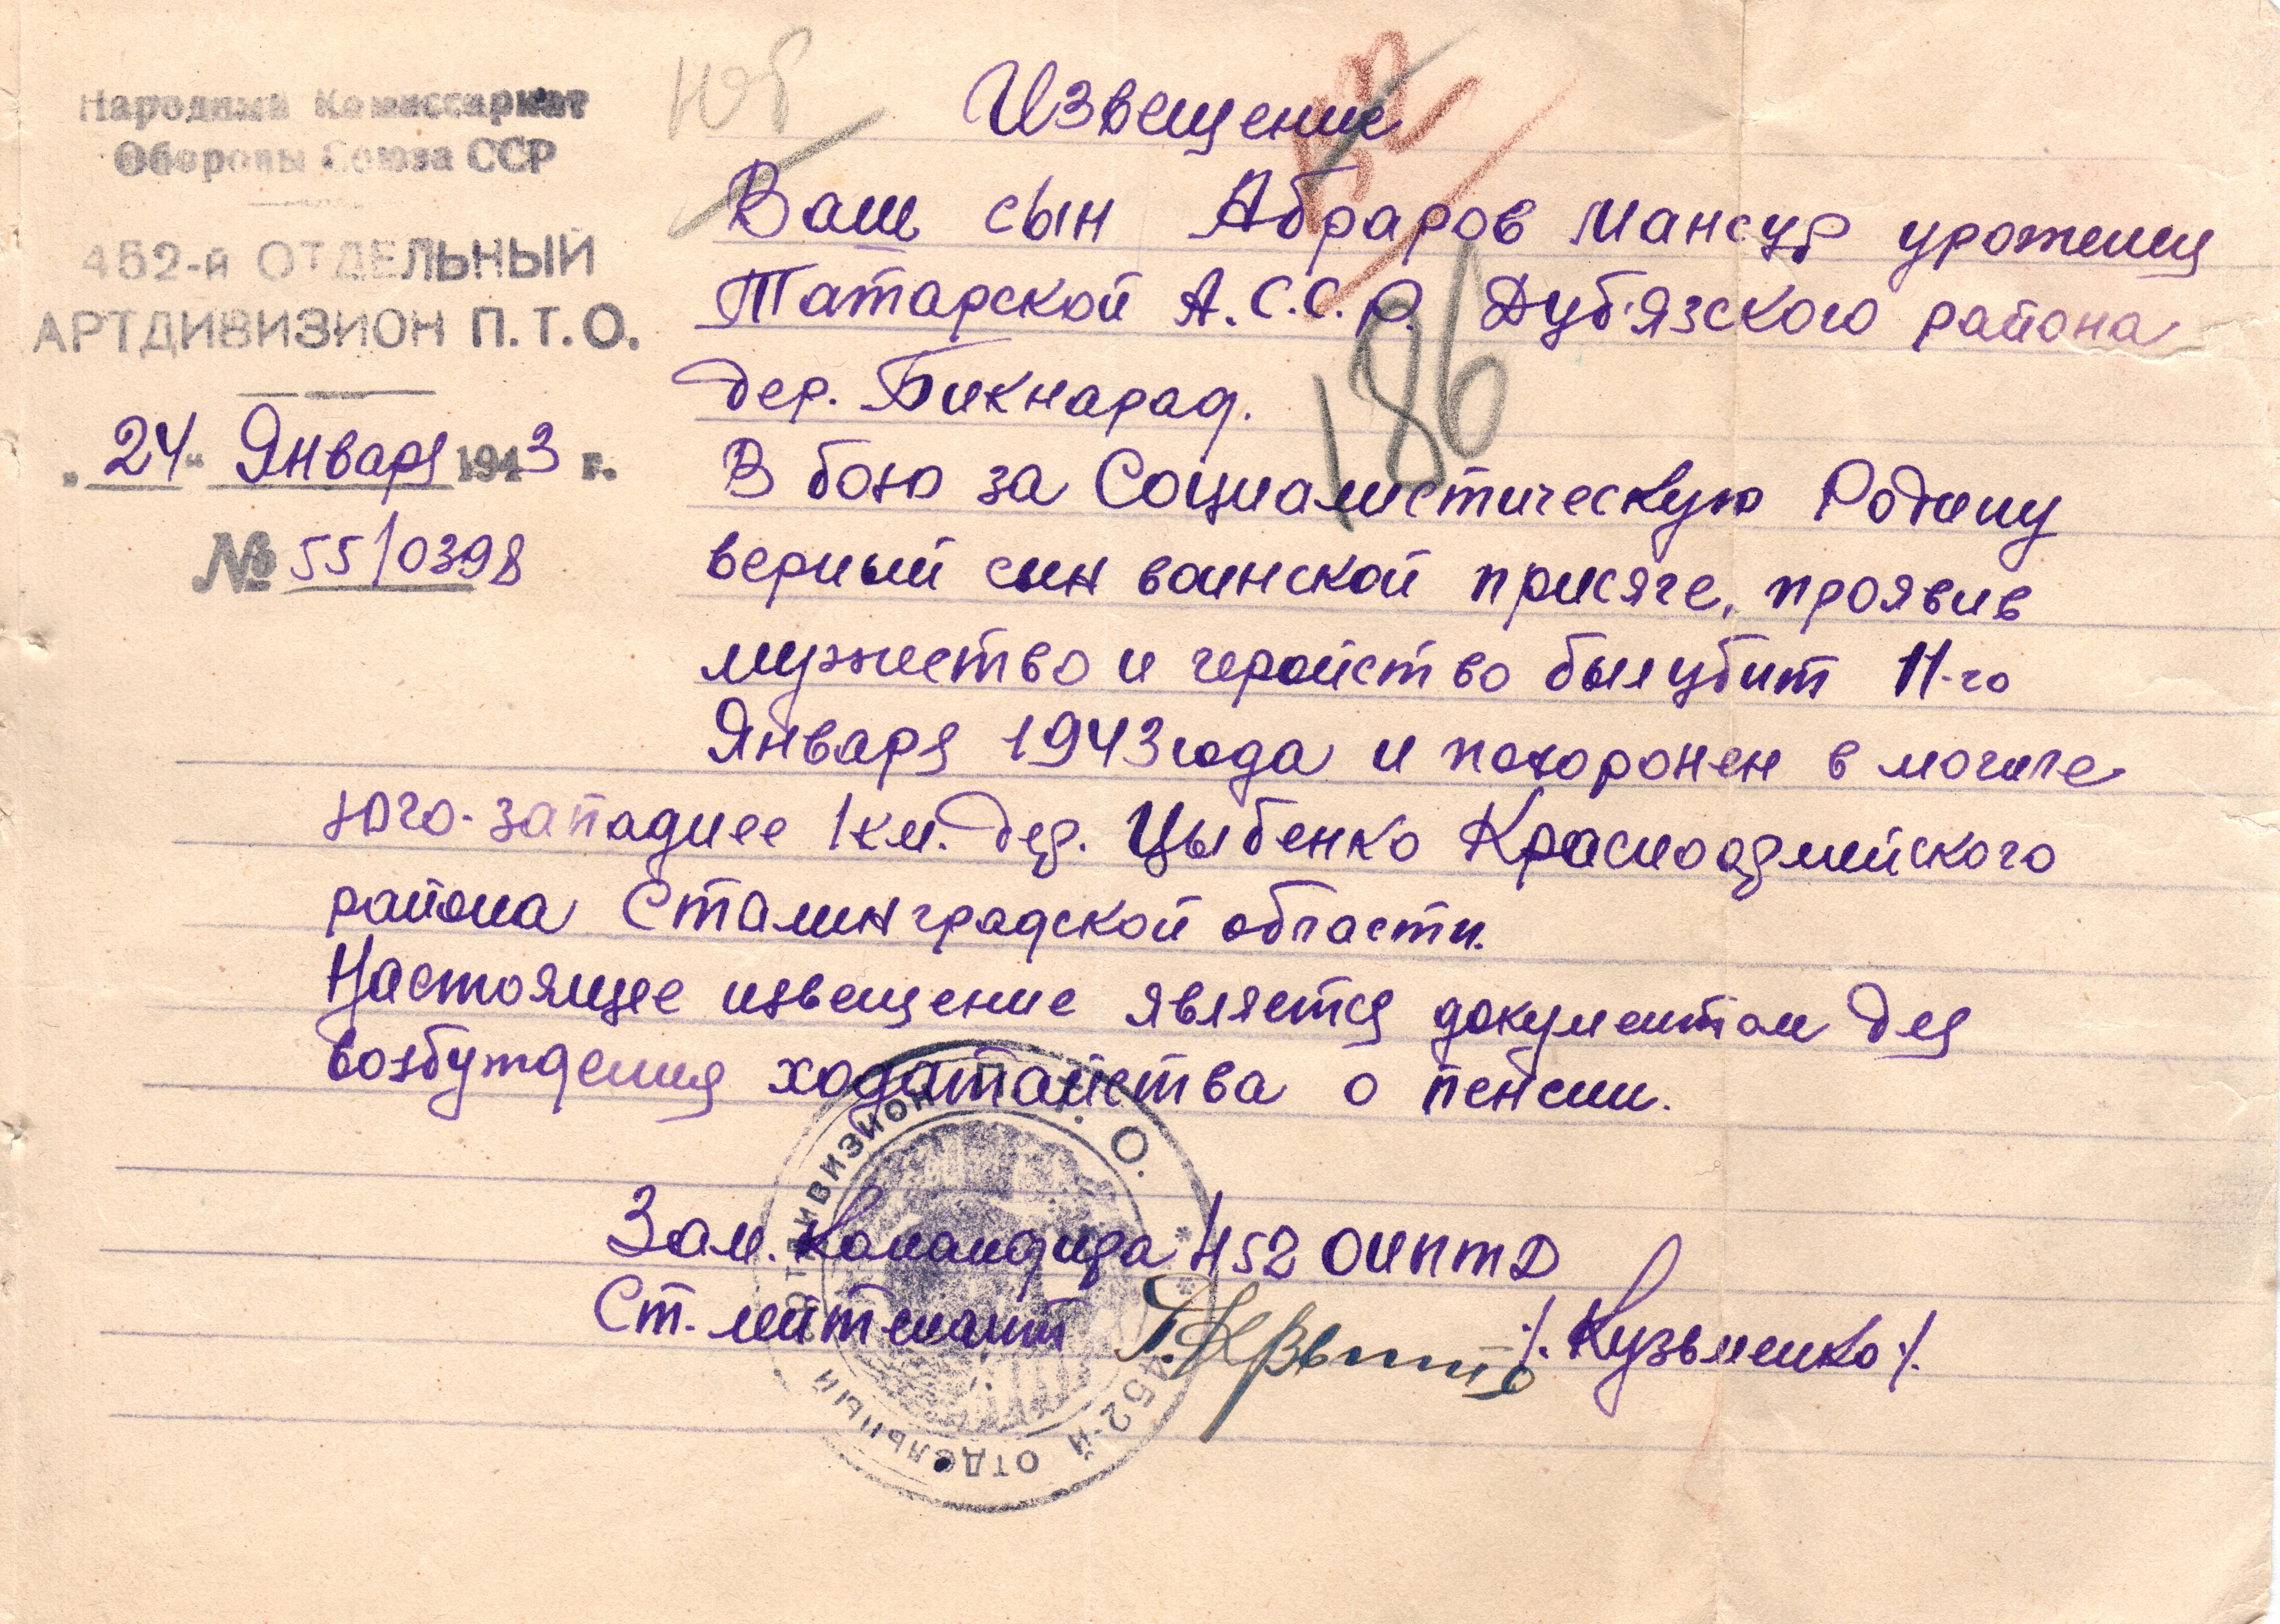 Народный Комиссариат
Обороны Союза ССР
452-й ОТДЕЛЬНЫЙ
АРТДИВИЗИОН П.Т.О.
„24" Января 1943 г.
№ 55/0398
Извещение
Ваш сын Абраров Мансур уроженец
Татарской А.С.С.Р. Дуб'язского района
дер. Бикнарад.
186
В бою за Социалистическую Родину
верный сын воинской присяге, проявив
мужество и геройство был убит 11-го
Января 1943 года и похоронен в могиле
юго-западнее 1 км. дер. Цыбенко Красноармейского
района Сталинградской области.
Настоящее извещение является документом для
возбуждения ходатайства о пенсии.
Зам. Командира 452 ОИПТД
Ст. лейтенант /. Кузьменко /.
452-й ОТДЕЛЬНЫЙ АРТДИВИЗИОН П.Т.О.